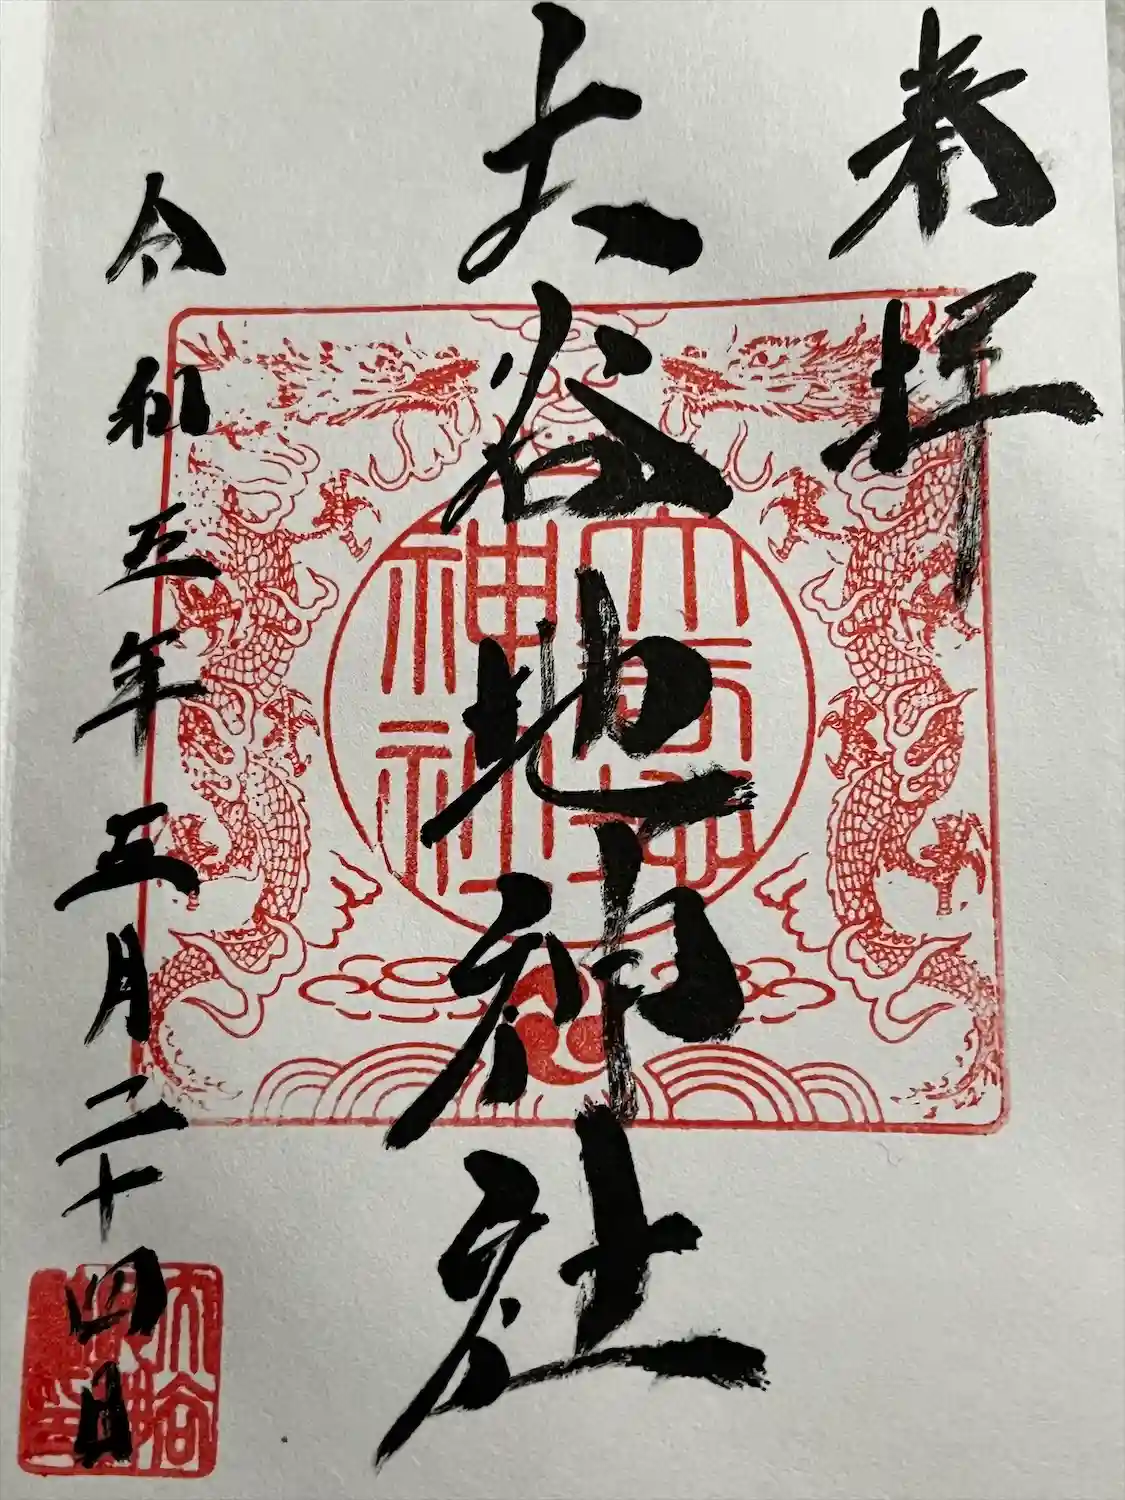 奉拝
大谷地神社
令和五年五月二十四日
大谷地
神社